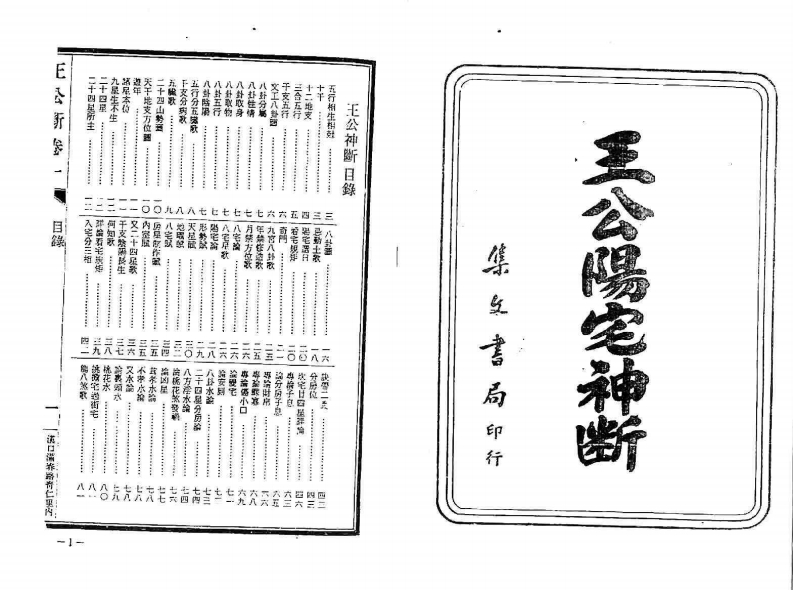 王公陽宅神斷
集文書局印行
王公神斷目錄
五行相生相尅 三
十干 三
十二地支 四
三合五行 四
干支五行 五
文王八卦圖 六
八卦分屬 六
八卦性情 七
八卦取身 七
八卦取物 七
八卦五行 七
八卦陰陽 七
五行分五臟歌
干支分病歌 八
五臟歌 九
二十四山勢圖
天干地支方位圖 一〇
遊年 一〇
諸星本位 一一
九星生不生 一一
二十四星 一二
二十四星所主 一二
八卦圖 一六
忌動土歌 一八
陽宅選日 二〇
看宅規矩 二〇
奇門 二一
九宮八卦歌 二五
年禁修造歌 二五
月禁方位歌 二六
八宅論 二六
八宅星歌 二六
陽宅論 二八
形勢賦 二九
天星賦 三〇
地環賦 三二
八宅賦 三四
房星制作賦 三五
內室賦 三五
又二十四星歌 三六
干支驗陽長生 三七
何知歌 三八
評論看宅規矩 三九
入宅分三組 四二
分房位 四三
坎宅廿四星評論 四六
專論子息 六三
論分房子息 六五
專論財帛 六六
專論壽 六八
專論傷小口 六九
論變宅 七一
論安厠 七一
八卦水論 七三
二十四星分房論 七四
八方淫水論 七四
論桃花煞發禍 七六
論凶星 七七
真孝水論 七八
不孝水論 七八
又水論 七八
論裹頭水 七九
桃花水 八〇
洩漏宅過街宅 八一
龍八煞歌 八一
王公斷卷一
目錄
一
漢口滿春路育仁里內
—1—